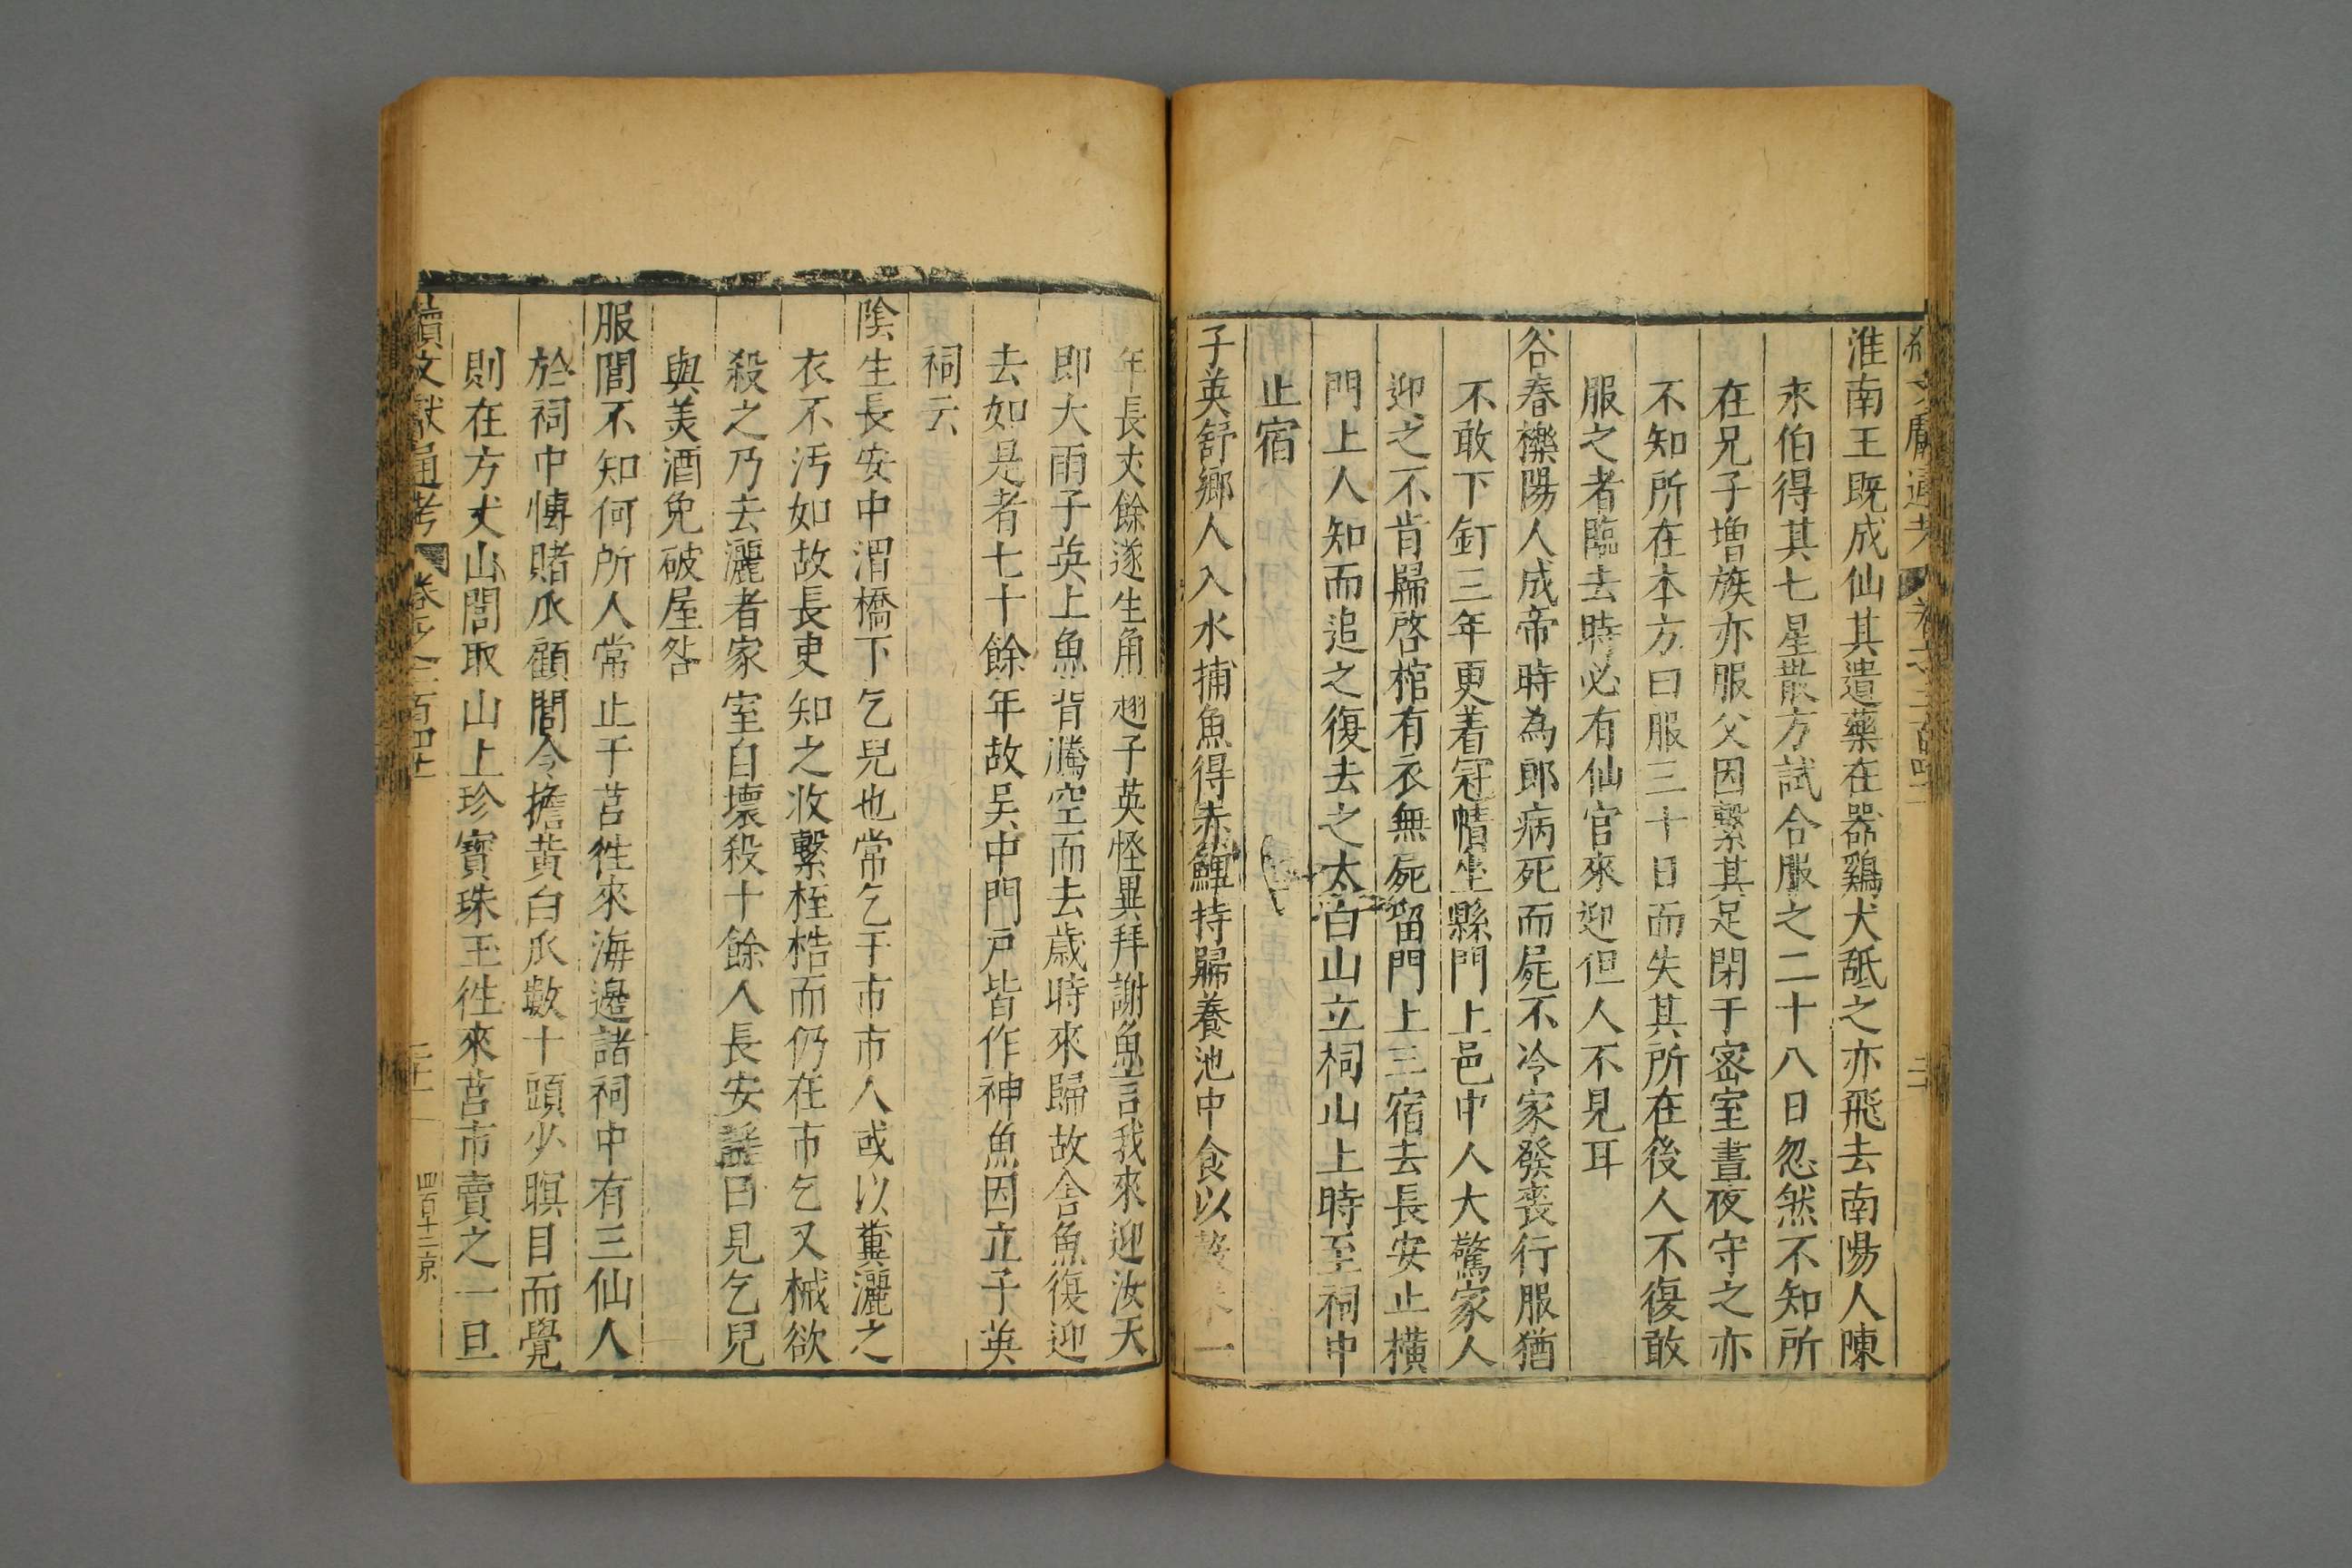 淮南王既成仙其遺藥在器鷄犬舐之亦飛去南陽人陳
永伯得其七星散方試合服之二十八日忽然不知所
在兄子增族亦服父因繫其足閉于密室晝夜守之亦
不知所在本方曰服三十日而失其所在後人不復敢
服之者臨去時必有仙官來迎但人不見耳
谷春櫟陽人成帝時為郎病死而屍不冷家發喪行服猶
不敢下釘三年更着冠幘坐縣門上邑中人大驚家人
迎之不肯歸啓棺有衣無屍留門上三宿去長安止橫
門上人知而追之復去之太白山立祠山上時至祠中
止宿
子英舒鄉人入水捕魚得赤鯉持歸養池中食以 米一
年長丈餘遂生角翅子英怪異拜謝魚言我來迎汝天
即大雨子英上魚背騰空而去歲時來歸故舍魚復迎
去如是者七十餘年故吳中門戶皆作神魚因立子英
祠云
陰生長安中渭橋下乞兒也常乞于市市人或以糞灑之
衣不汚如故長吏知之收繫桎梏而仍在市乞又械欲
殺之乃去灑者家室自壞殺十餘人長安謠曰見乞兒
與美酒免破屋咎
服閭不知何所人常止于莒徃來海邊諸祠中有三仙人
於祠中愽賭瓜顧閭令擔黃白瓜數十頭少瞑目而覺
則在方丈山閭取山上珍寶珠玉徃來莒市賣之一旦
續文獻通考 卷之二百四十
四百十二京